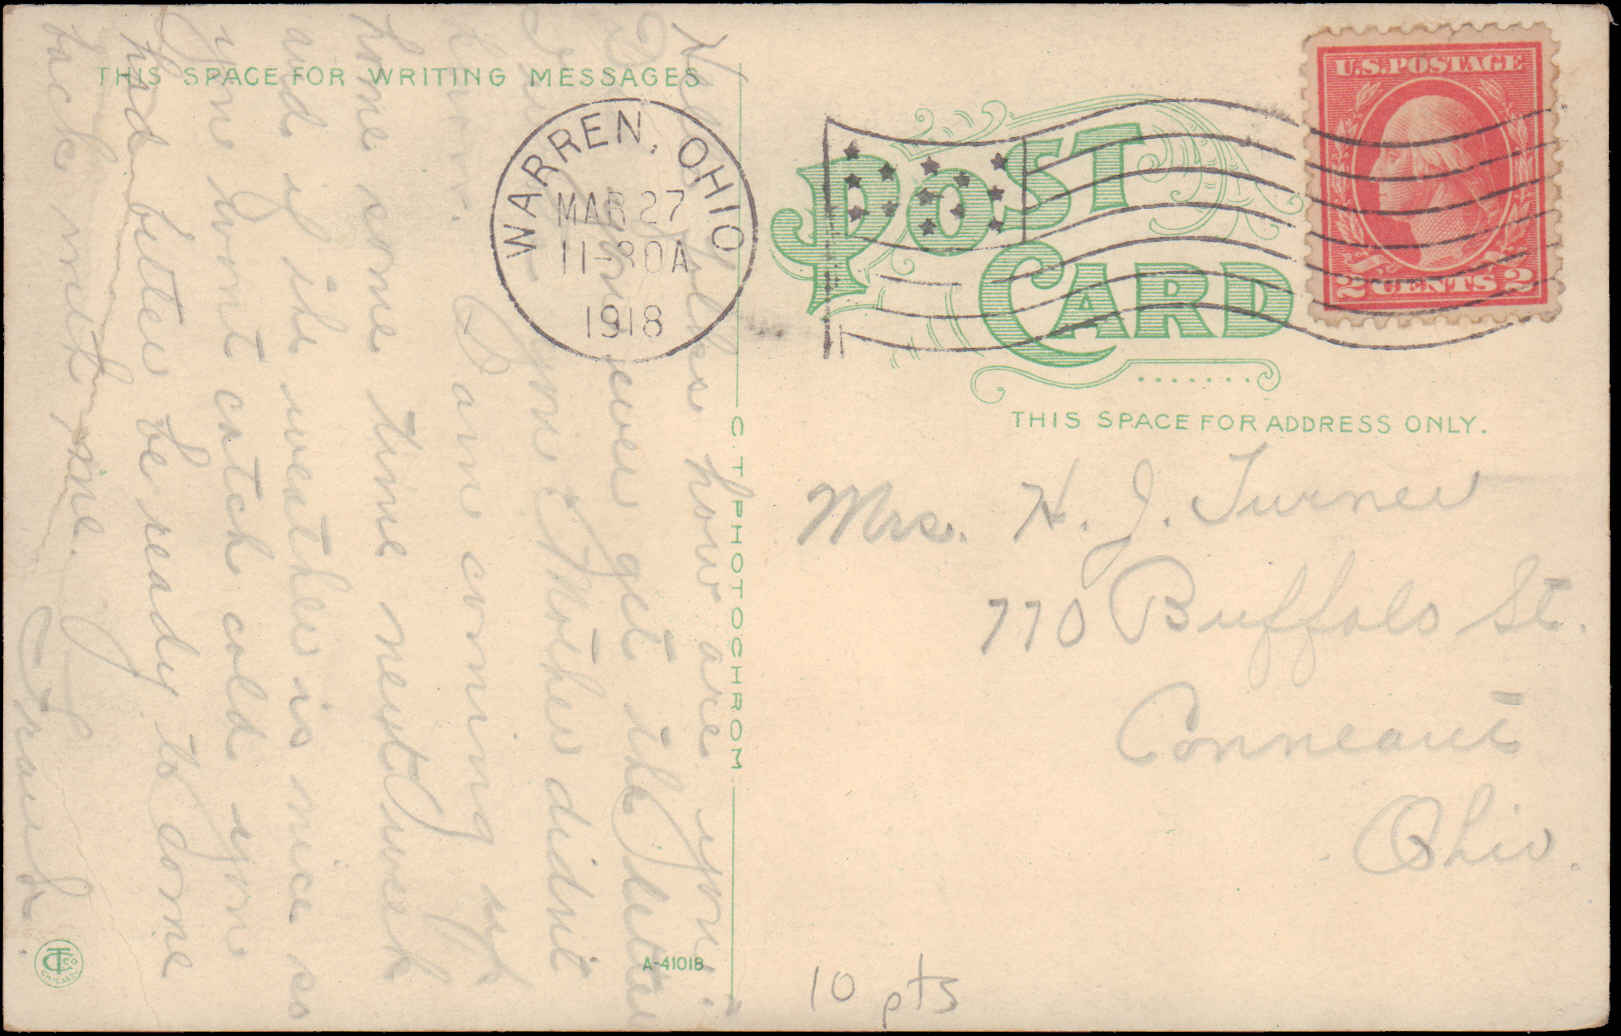 THIS SPACE FOR WRITING MESSAGES
Hello Ethel how are you.
Did you ever get the letter
I sent you Mother didnt
know. I am coming up
home some time next week
and if the weather is nice so
you wont catch cold you
had better be ready to come
back with me.
C T PHOTOCHROM
A-41018
WARREN, OHIO
MAR 27
11-30A
1918
U.S. POSTAGE
2 CENTS 2
POST
CARD
THIS SPACE FOR ADDRESS ONLY.
Mrs. H. J. Turner
770 Buffalo St.
Conneaut
Ohio.
10 pts